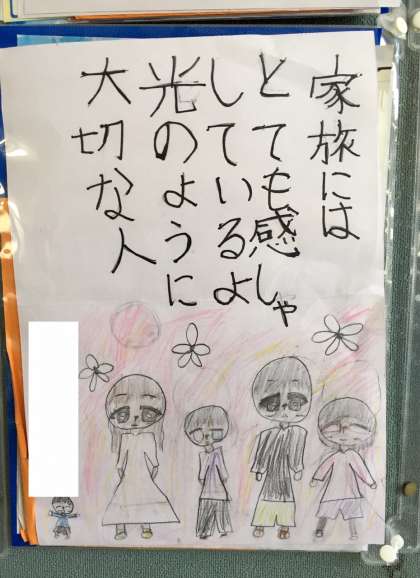 家旅には
とても感しゃ
しているよ
光のように
大切な人